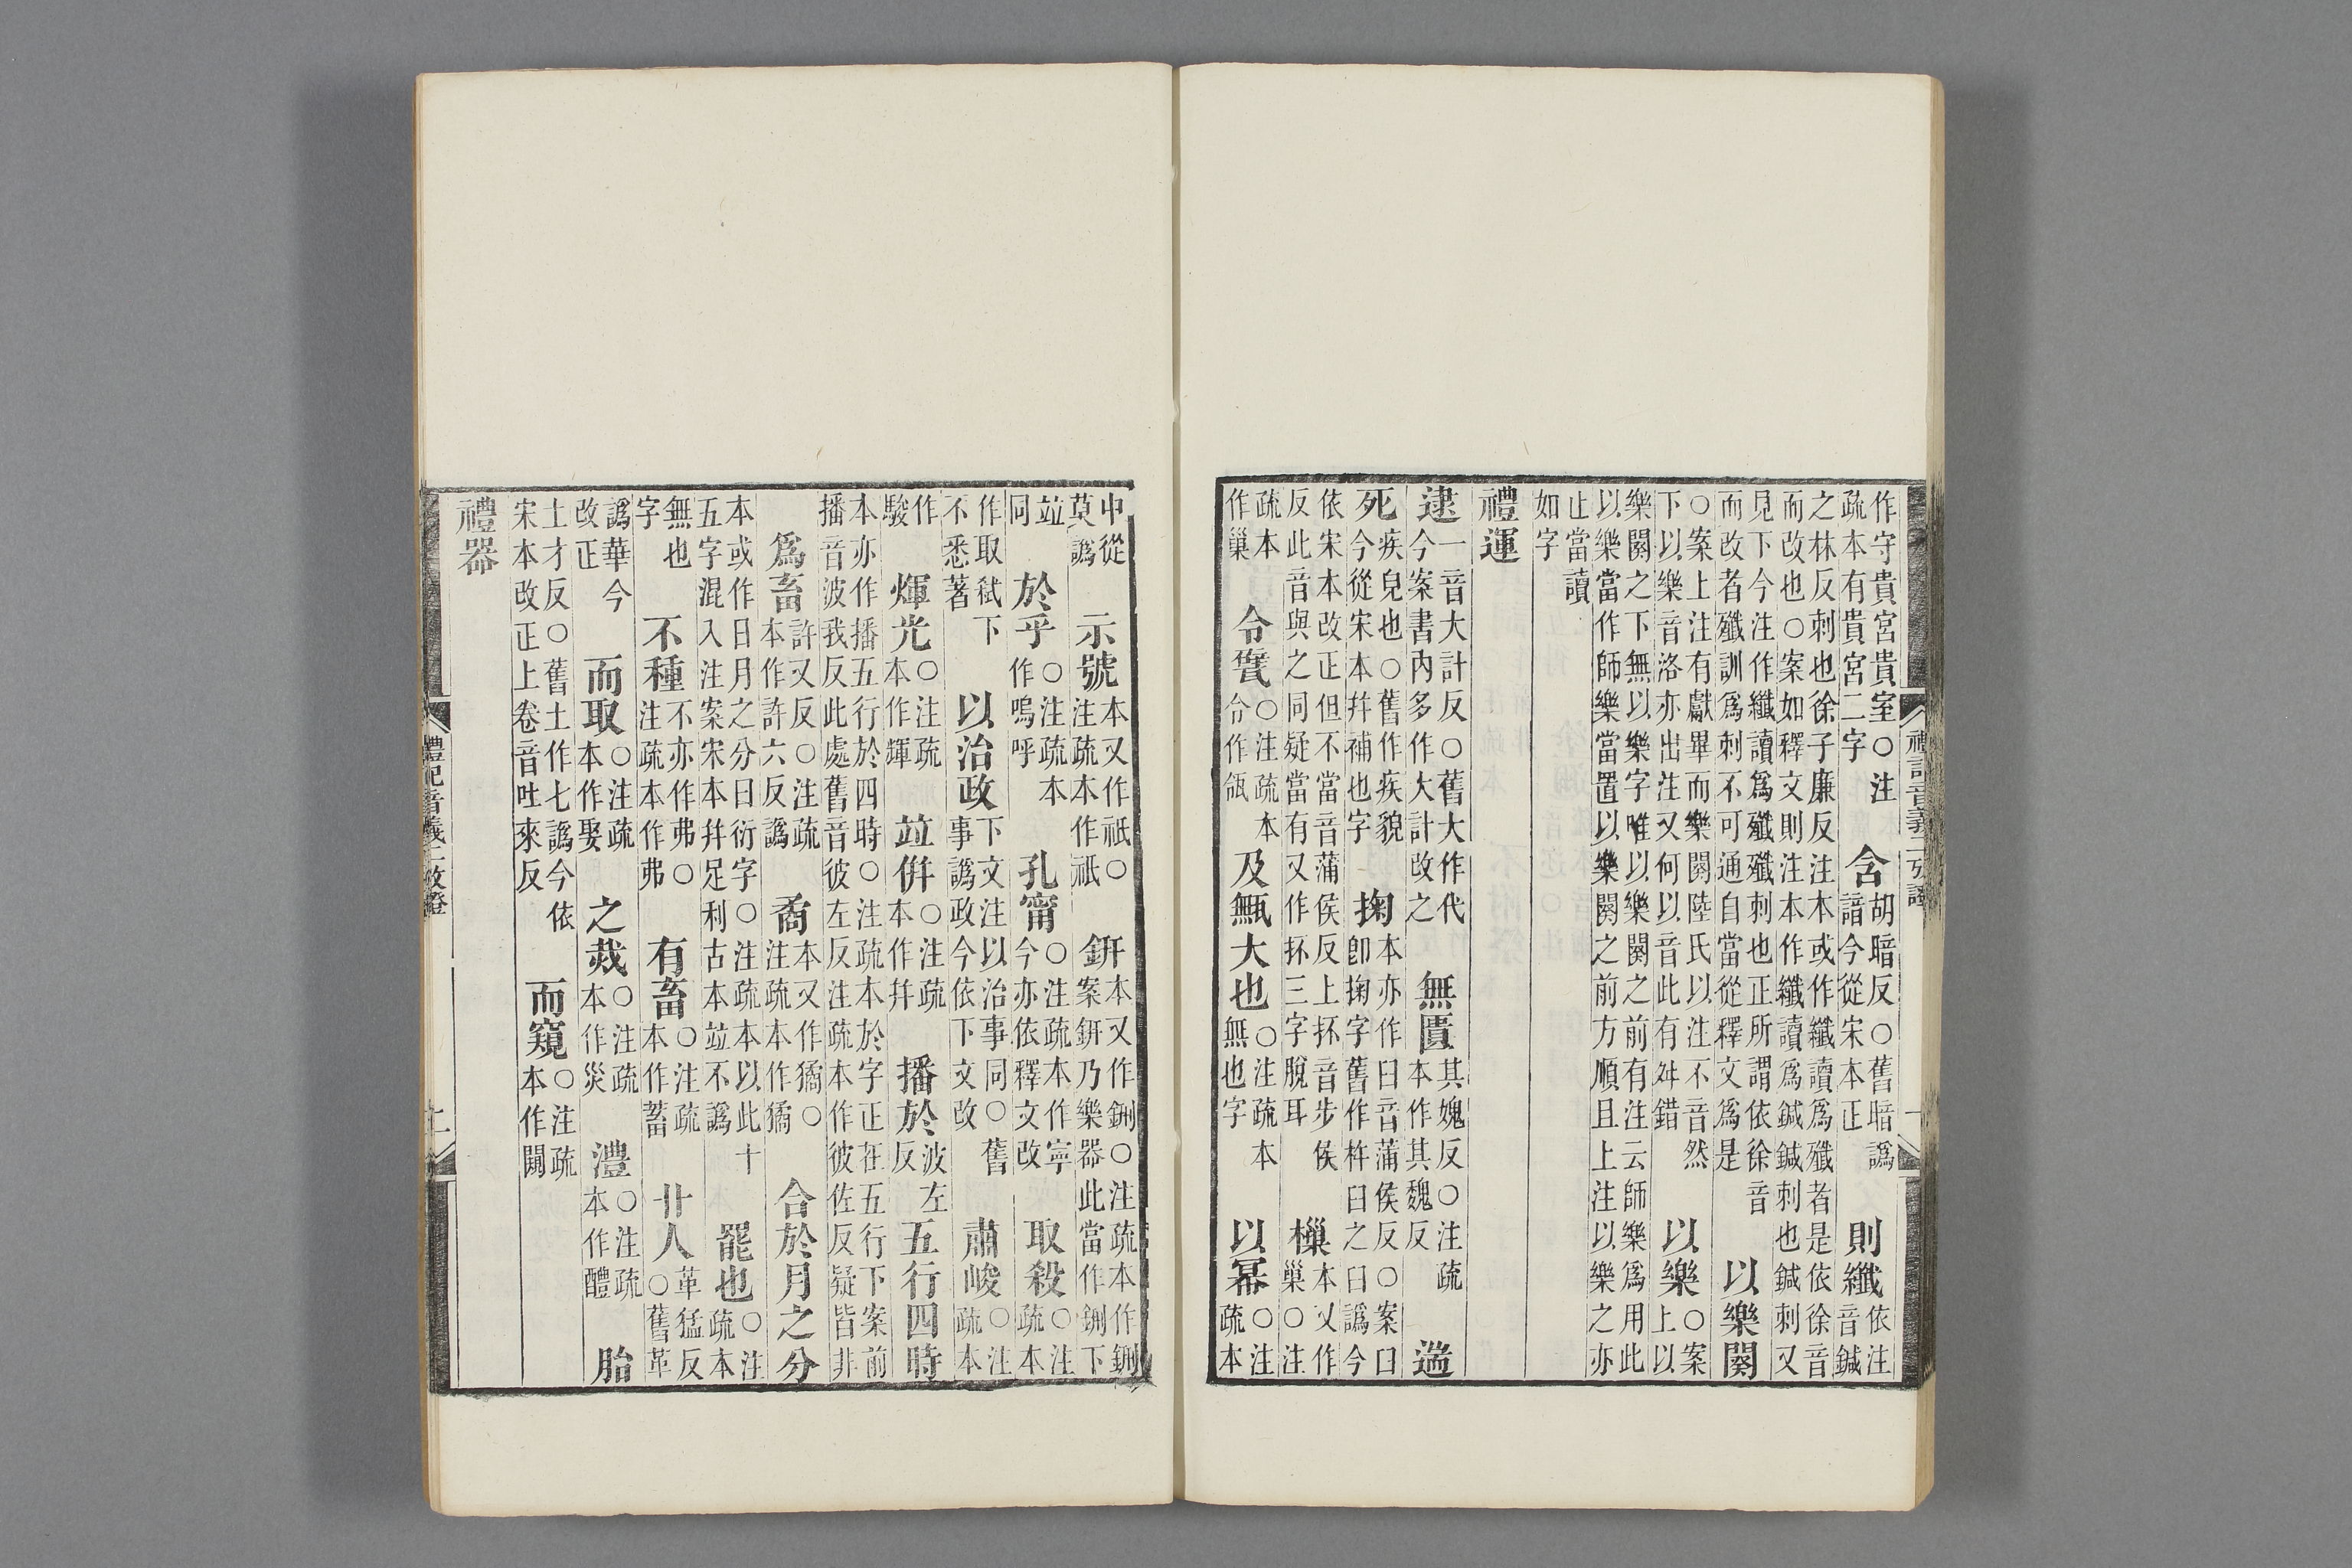 作守貴宮貴室○注
疏本有貴宮二字
含
胡暗反○舊暗譌
諳今從宋本正
則纖
依注
音鍼
之林反刺也徐子廉反注本或作纖讀爲殲者是依徐音
而改也○案如釋文則注本作纖讀爲鍼鍼刺也鍼刺又
見下今注作纖讀爲殲殲刺也正所謂依徐音
而改者殲訓爲刺不可通自當從釋文爲是
以樂闋
○案上注有獻畢而樂闋陸氏以注不音然
下以樂音洛亦出注又何以音此有舛錯
以樂
○案
上以
樂闋之下無以樂字唯以樂闋之前有注云師樂爲用此
以樂當作師樂當置以樂闋之前方順且上注以樂之亦
止當讀
如字
禮運
逮
一音大計反○舊大作代
今案書內多作大計改之
無匱
其媿反○注疏
本作其魏反
遄
死
疾皃也○舊作疾貌
今從宋本幷補也字
掬
本亦作臼音蒲侯反○案臼
卽掬字舊作杵臼之臼譌今
依宋本改正但不當音蒲侯反上抔音步侯
反此音與之同疑當有又作抔三字脫耳
樔
本又作
巢○注
疏本
作巢
令甓
○注疏本
令作瓴
及甒大也
○注疏本
無也字
以冪
○注
疏本
中從
莫譌
示號
本又作祇○
注疏本作祇
鈃
本又作鉶○注疏本作鉶
案鈃乃樂器此當作鉶下
竝
同
於乎
○注疏本
作嗚呼
孔甯
○注疏本作寧
今亦依釋文改
取殺
○注
疏本
作取弒下
不悉著
以治政
下文注以治事同○舊
事譌政今依下文改
肅峻
○注
疏本
作
駿
煇光
○注疏
本作輝
竝倂
○注疏
本作幷
播於
波左
反
五行四時
本亦作播五行於四時○注疏本於字正在五行下案前
播音波我反此處舊音彼左反注疏本作彼佐反疑皆非
爲畜
許又反○注疏
本作許六反譌
矞
本又作獝○
注疏本作獝
合於月之分
本或作日月之分曰衍字○注疏本以此十
五字混入注案宋本幷足利古本竝不譌
罷也
○注
疏本
無也
字
不種
不亦作弗○
注疏本作弗
有畜
○注疏
本作蓄
卝人
革猛反
○舊革
譌華今
改正
而取
○注疏
本作娶
之烖
○注疏
本作災
澧
○注疏
本作醴
胎
土才反○舊土作七譌今依
宋本改正上卷音吐來反
而窺
○注疏
本作闚
禮器
禮記音義二攷證